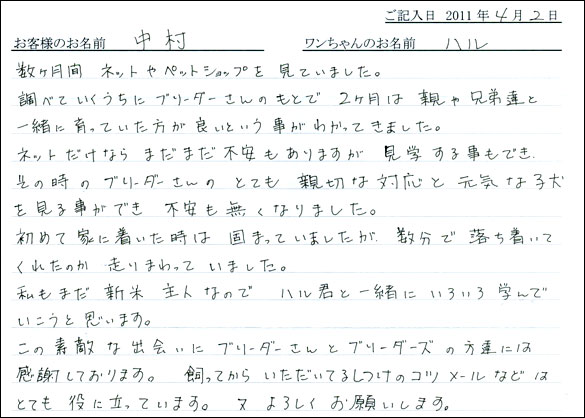 ご記入日 2011年4月2日
お客様のお名前 中村 ワンちゃんのお名前 ハル
数ヶ月間 ネットやペットショップを見ていました。
調べていくうちにブリーダーさんのもとで 2ヶ月は親や兄弟達と
一緒に育っていた方が良いという事がわかってきました。
ネットだけなら まだまだ不安もありますが 見学する事もでき、
その時のブリーダーさんの とても 親切な対応と 元気な子犬
を見る事ができ 不安も無くなりました。
初めて家に着いた時は 固まっていましたが、数分で落ち着いて
くれたのか 走りまわって いました。
私もまだ 新米主人なので ハル君と一緒に いろいろ学んで
いこうと思います。
この素敵な出会いに ブリーダーさんとブリーダーズの方達には
感謝しております。 飼ってから いただいてるしつけのコツメールなどは
とても役に立っています。 よろしくお願いします。